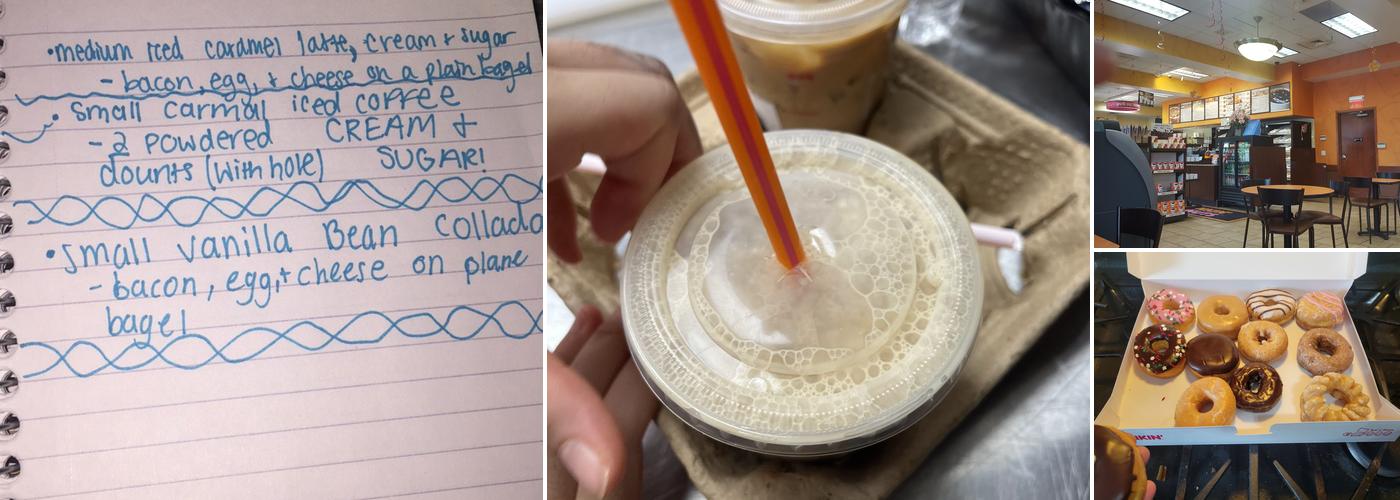 •medium iced caramel latte, cream + sugar
- bacon, egg, + cheese on a plain bagel
• small carmal iced coffee
- 2 powdered CREAM +
dounts (with hole) SUGAR!
• small vanilla Bean Collada
- bacon, egg, + cheese on plane
bagel
NKIN'